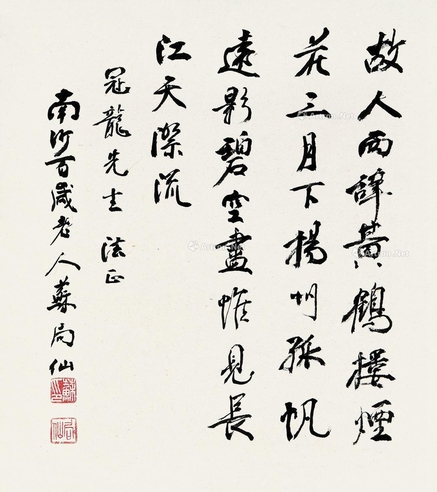 故人西辞黃鶴樓煙
花三月下揚州孤帆
遠影碧空盡惟見長
江天際流
冠龍先生 法正
南沙百歲老人蘇局仙
蘇
局仙